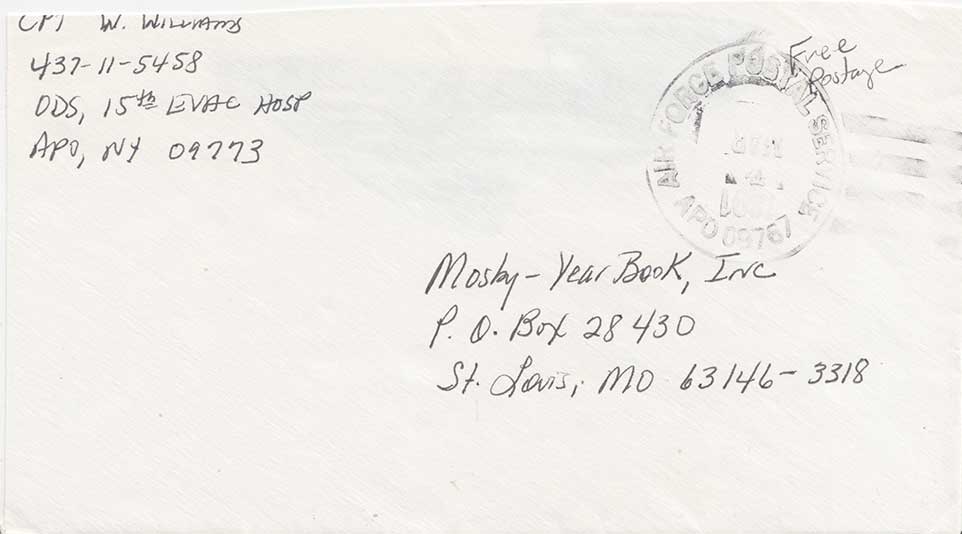 CPT W. WILLIAMS
437-11-5458
ODS, 15th EVAC HOSP
APO, NY 09773
Free
Postage
AIR FORCE POSTAL SERVICE
APO 09767
Mosby-Year Book, Inc
P. O. Box 28430
St. Louis, MO 63146-3318